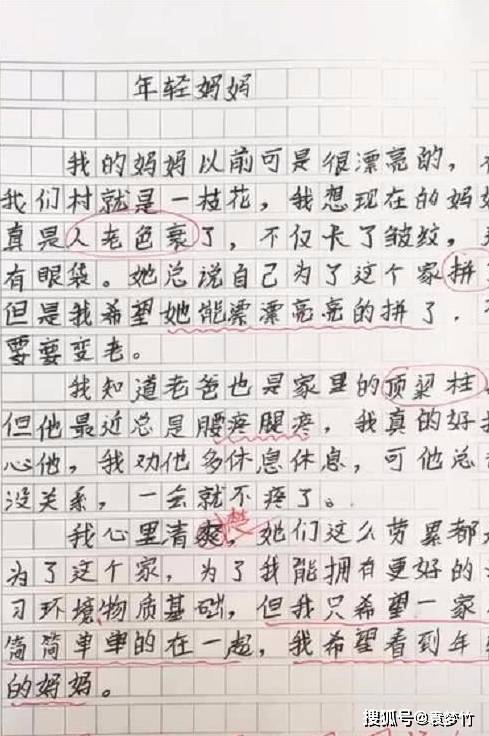 年轻妈妈
我的妈妈以前可是很漂亮的，
我们村就是一枝花，我想现在的妈妈
真是人老色衰了，不仅卡了皱纹，
有眼袋。她总说自己为了这个家拼
但是我希望她能漂漂亮亮的拼了，
要要变老。
我知道老爸也是家里的顶梁柱
但他最近总是腰疼腿疼，我真的好担
心他，我劝他多休息休息，可他总
没关系，一会就不疼了。
楚
我心里清爽，她们这么劳累都
为了这个家，为了我能拥有更好的
习环境、物质基础，但我只希望一家
简简单单的在一起，我希望看到年
的妈妈。
搜狐号@襄梦竹